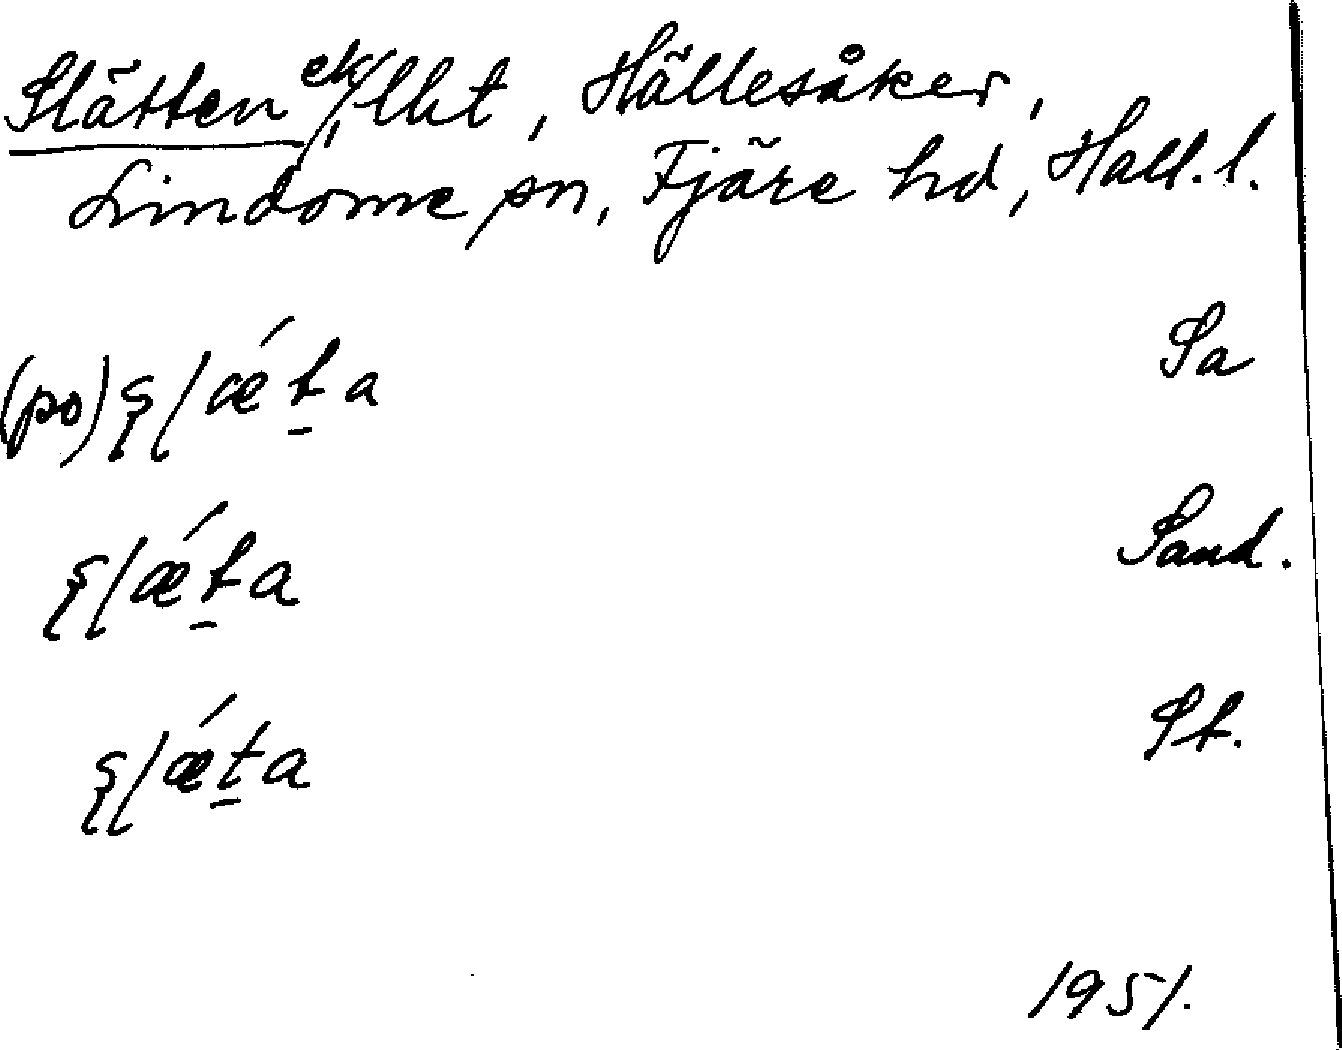 Slätten ek/lht, Hällesåker,
Lindome sn, Fjäre hd, Hall. l.
(po) ʂɭǽṯa Sa
ʂɭǽṯa Sand.
ʂɭǽṯa St.
1951.